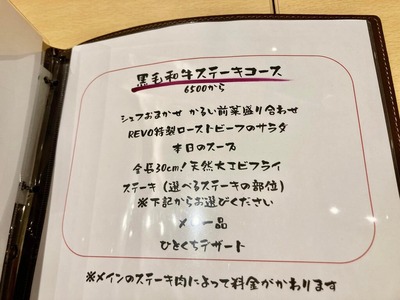 黒毛和牛ステーキコース
6500から
シェフおまかせ かるい前菜盛り合わせ
REVO特製ローストビーフのサラダ
本日のスープ
全長30cm!天然大エビフライ
ステーキ(選べるステーキの部位)
※下記からお選びください
一品
ひとくちデザート
※メインのステーキ肉によって料金がかわります